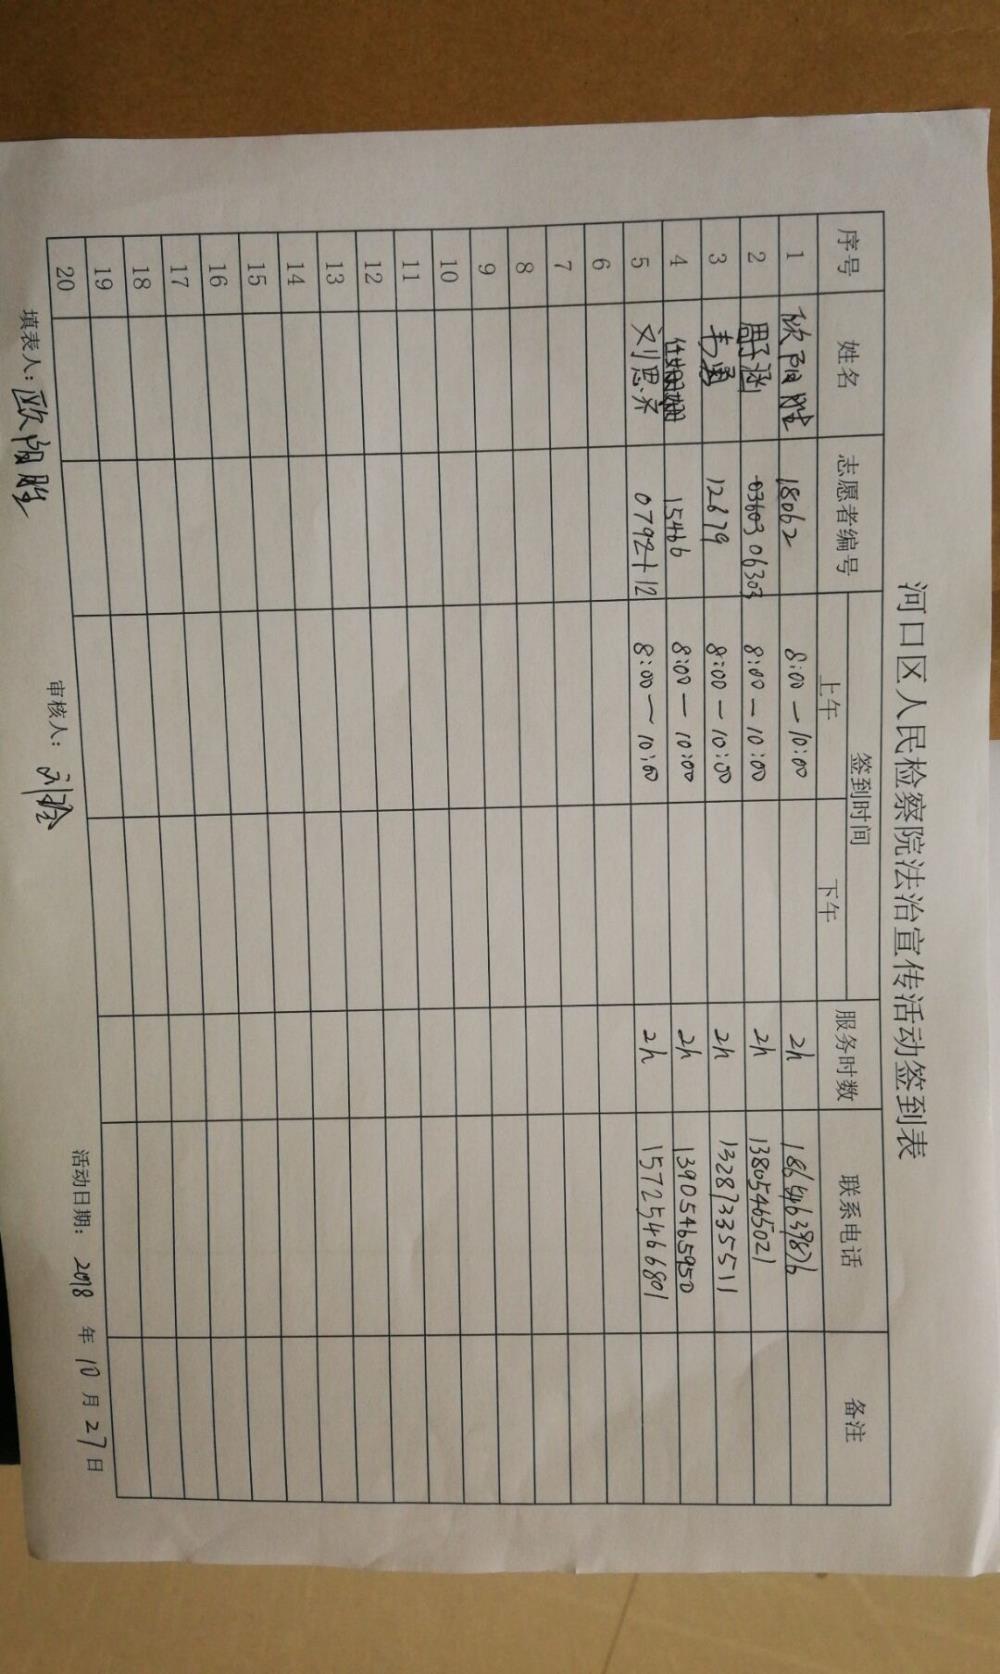 河口区人民检察院法治宣传活动签到表
序号 姓名 志愿者编号 签到时间 服务时数 联系电话 备注
上午 下午
1 欧阳胜 18062 8:00—10:00 2h 18654639876
2 周子渊 06303 8:00—10:00 2h 13805465021
3 韦勇 12679 8:00—10:00 2h 13287335511
4 15466 8:00—10:00 2h 13905465950
5 刘思齐 8:00—10:00 2h 15725466801
6
7
8
9
10
11
12
13
14
15
16
17
18
19
20
填表人：欧阳胜 审核人： 活动日期：2018年10月27日